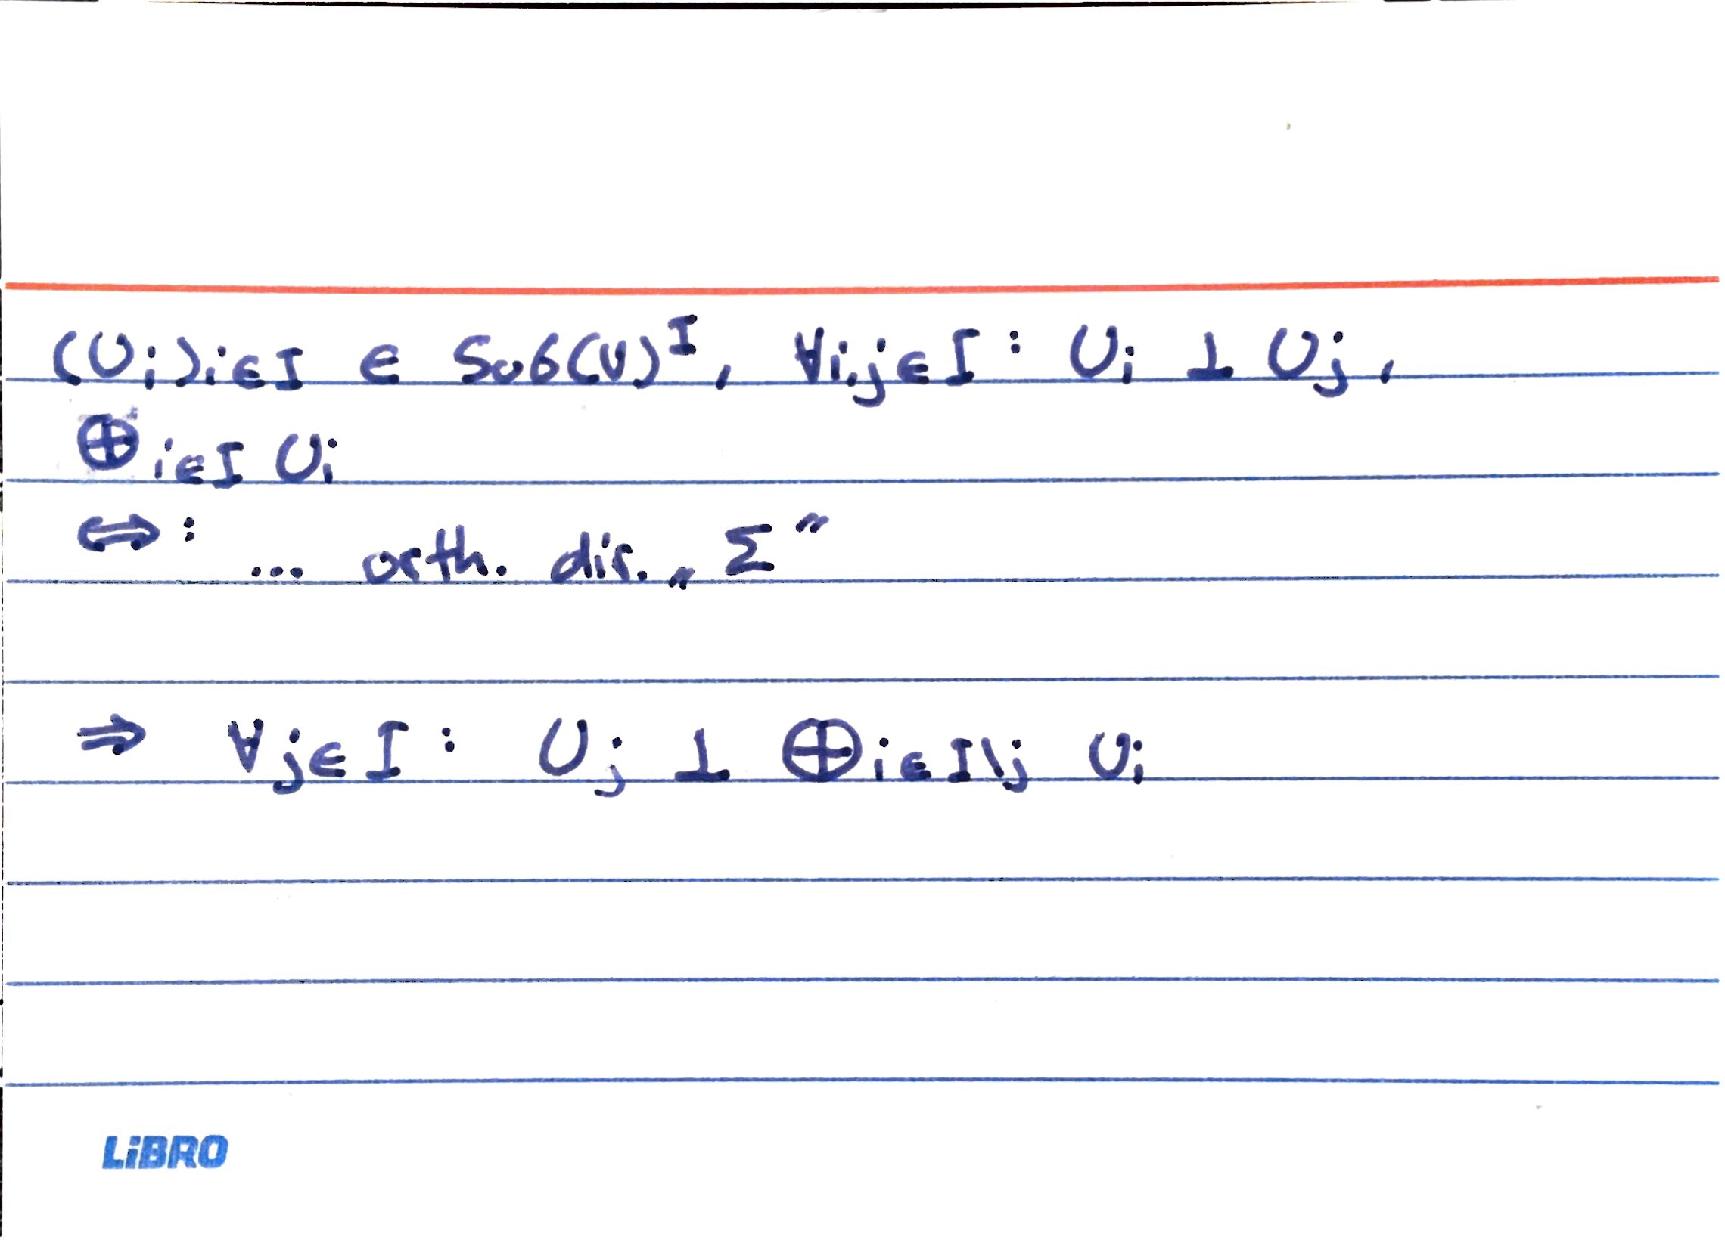 (Uᵢ)ᵢ∈I ∈ Sub(V)ᴵ, ∀i,j∈I : Uᵢ ⊥ Uⱼ,
⊕ i∈I Uᵢ
⇔: ... orth. dir. „Σ"
⇒ ∀j∈I : Uⱼ ⊥ ⊕ i∈I\j Uᵢ
LiBRO